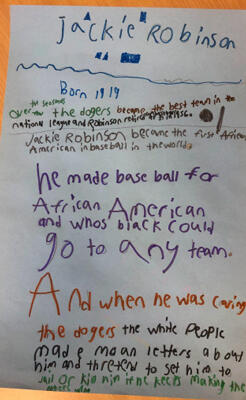 Jackie Robinson
Born 1919
over the seasons the dogers became the best team in the
national league and Robinson retired 1956.
Jackie Robinson became the first African
American in baseball in the world.
he made base ball for
African American
and whos black could
go to any team.
And when he was caring
the dogers the white people
made mean letters about
him and thretend to set him to
jail or kill him if he keeps making the